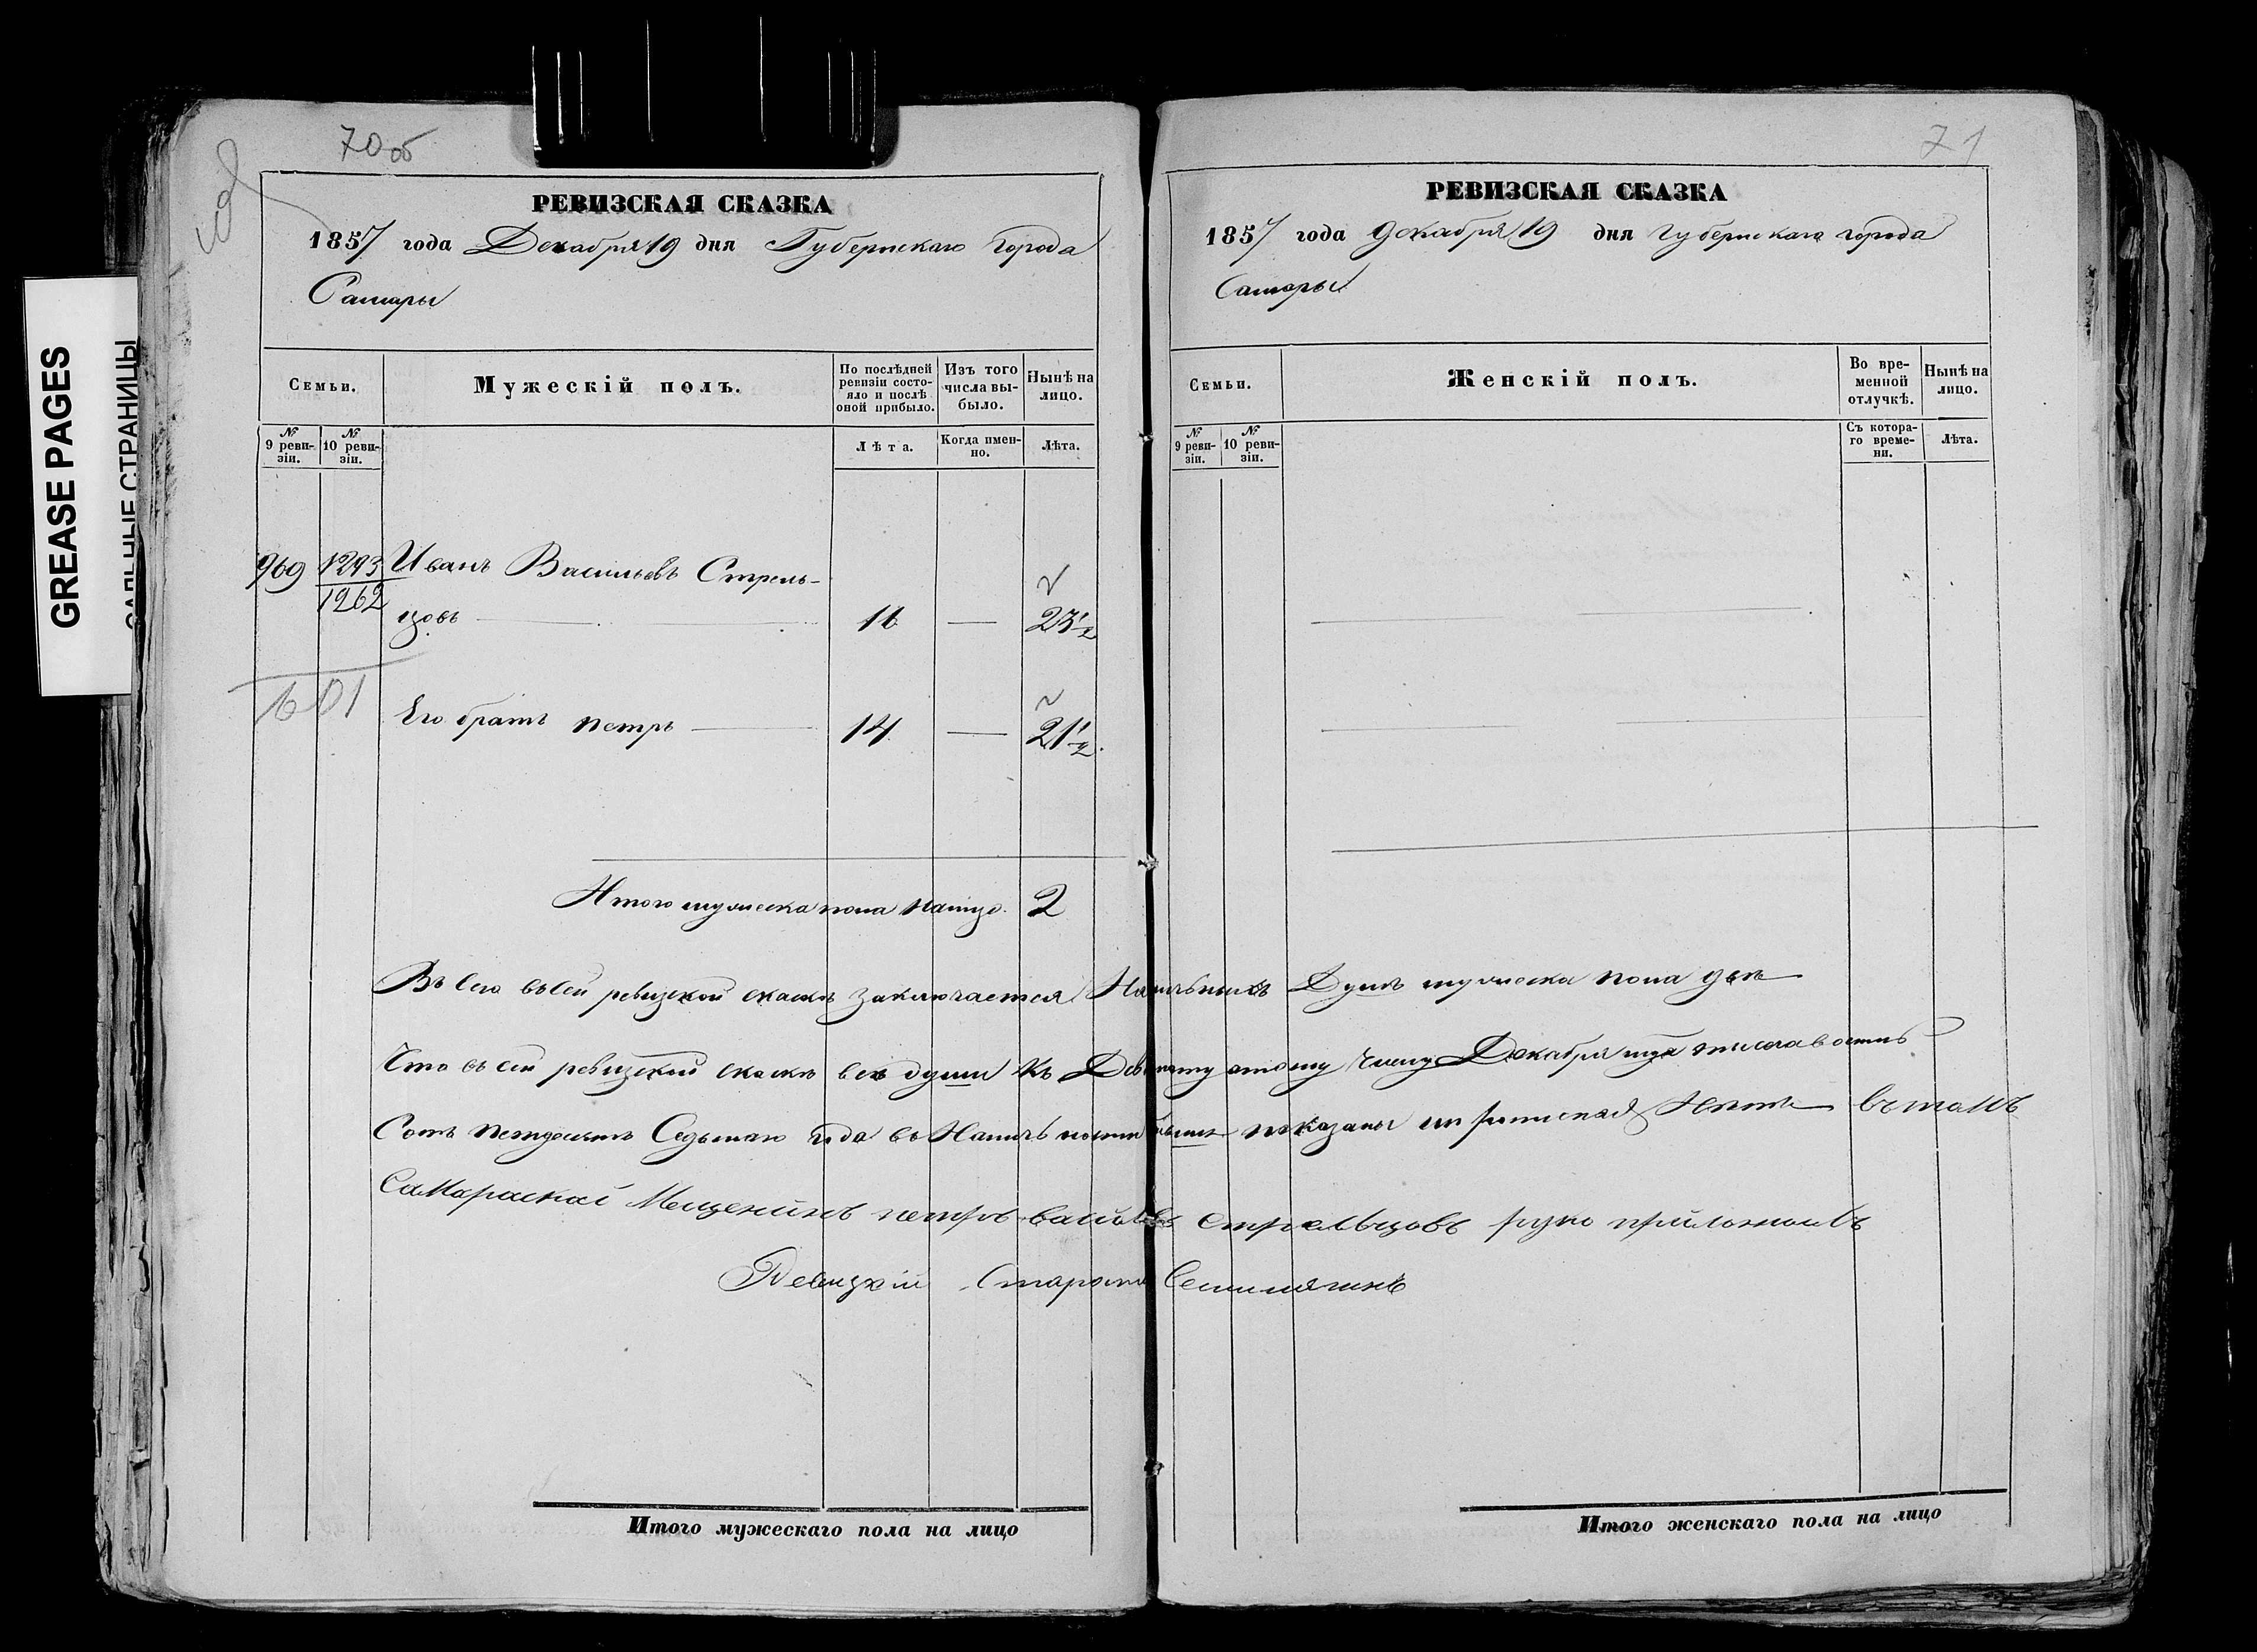 GREASE PAGES
САЛЬНЫЕ СТРАНИЦЫ
70 об
РЕВИЗСКАЯ СКАЗКА
1857 года Декабря 19 дня Губернскаго города
Самары
Семьи.
Мужескій полъ.
По послѣдней ревизіи состояло и послѣ оной прибыло.
Изъ того числа выбыло.
Нынѣ на лицо.
№ 9 ревизіи.
№ 10 ревизіи.
Лѣта.
Когда именно.
Лѣта.
969 1293 Иванъ Васильевъ Стрель-
1262
цовъ 16 — 23 1/2
Его братъ петръ 14 — 21 1/2
Итого мужеска пола налицо 2
71
РЕВИЗСКАЯ СКАЗКА
1857 года Декабря 19 дня Губернскаго города
Самары
Семьи.
Женскій полъ.
Во временной отлучкѣ.
Нынѣ на лицо.
№ 9 ревизіи.
№ 10 ревизіи.
Съ котораго времени.
Лѣта.
Въ сего въ сей ревизской скаскѣ заключается Наличныхъ Душъ мужеска пола две
Что въ сей ревизской скаскѣ все души къ Девятнатцатому Числу Декабря тысеча восемь
Сотъ петдесятъ Седьмаго года въ показаны и прописной Нѣтъ вътомъ
Самараскай Мещенинъ петръ васильевъ стрельцовъ руку приложилъ
Ревизкій Староста
Итого мужескаго пола на лицо
Итого женскаго пола на лицо